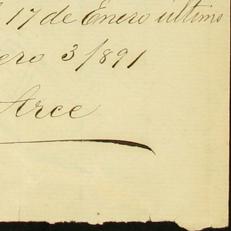 17 de Enero último
ero 3/891
Arce